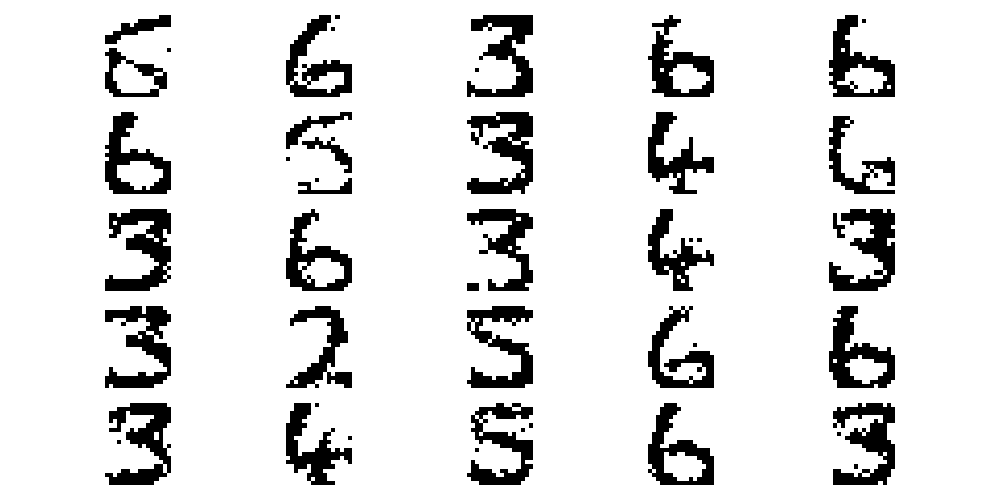 6 6 3 6 6
6 5 3 4 6
3 6 3 4 3
3 2 5 6 6
3 4 5 6 3